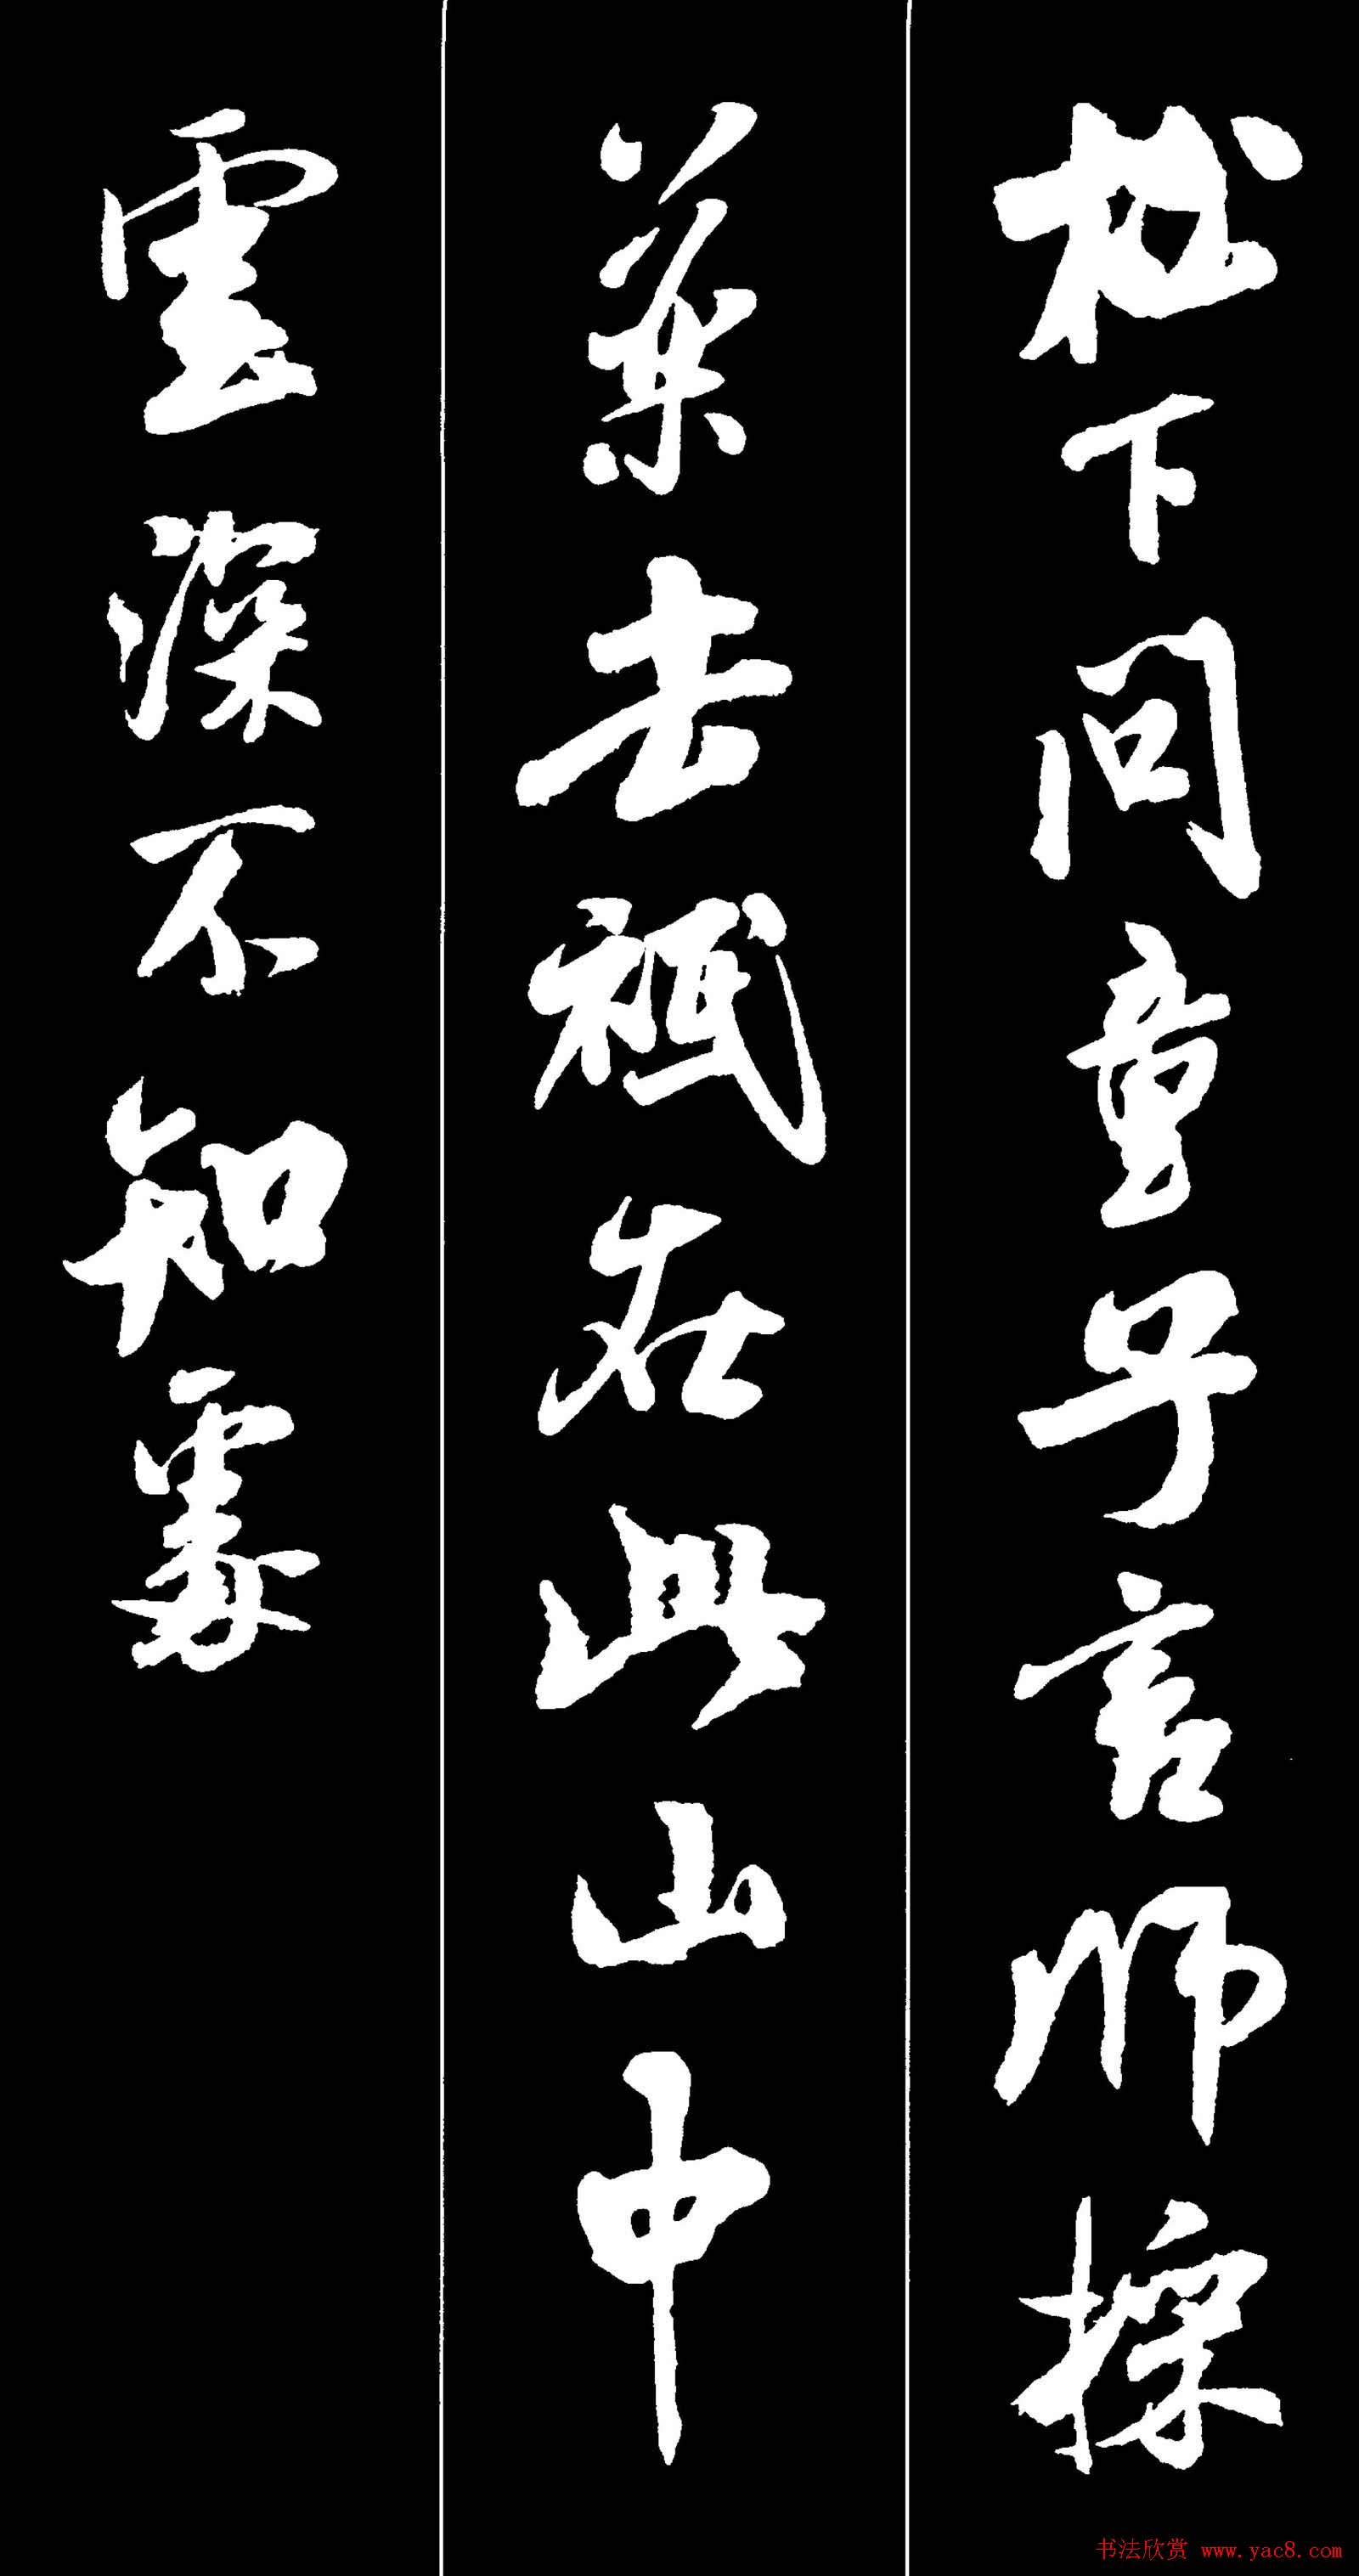 松下问童子言师採
药去祗在此山中
云深不知处
书法欣赏 www.yac8.com